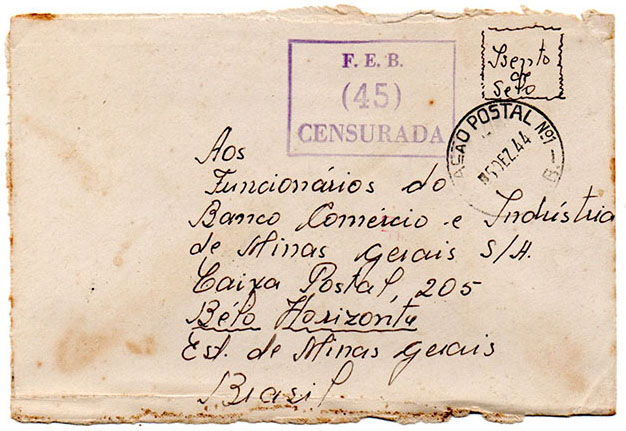 F. E. B.
(45)
CENSURADA
Isento
de
selo
AÇÃO POSTAL Nº1
DEZ.44
B.
Aos
Funcionários do
Banco Comércio e Indústria
de Minas Gerais S/A.
Caixa Postal, 205
Bélo Horizonte
Est. de Minas Gerais
Brasil.